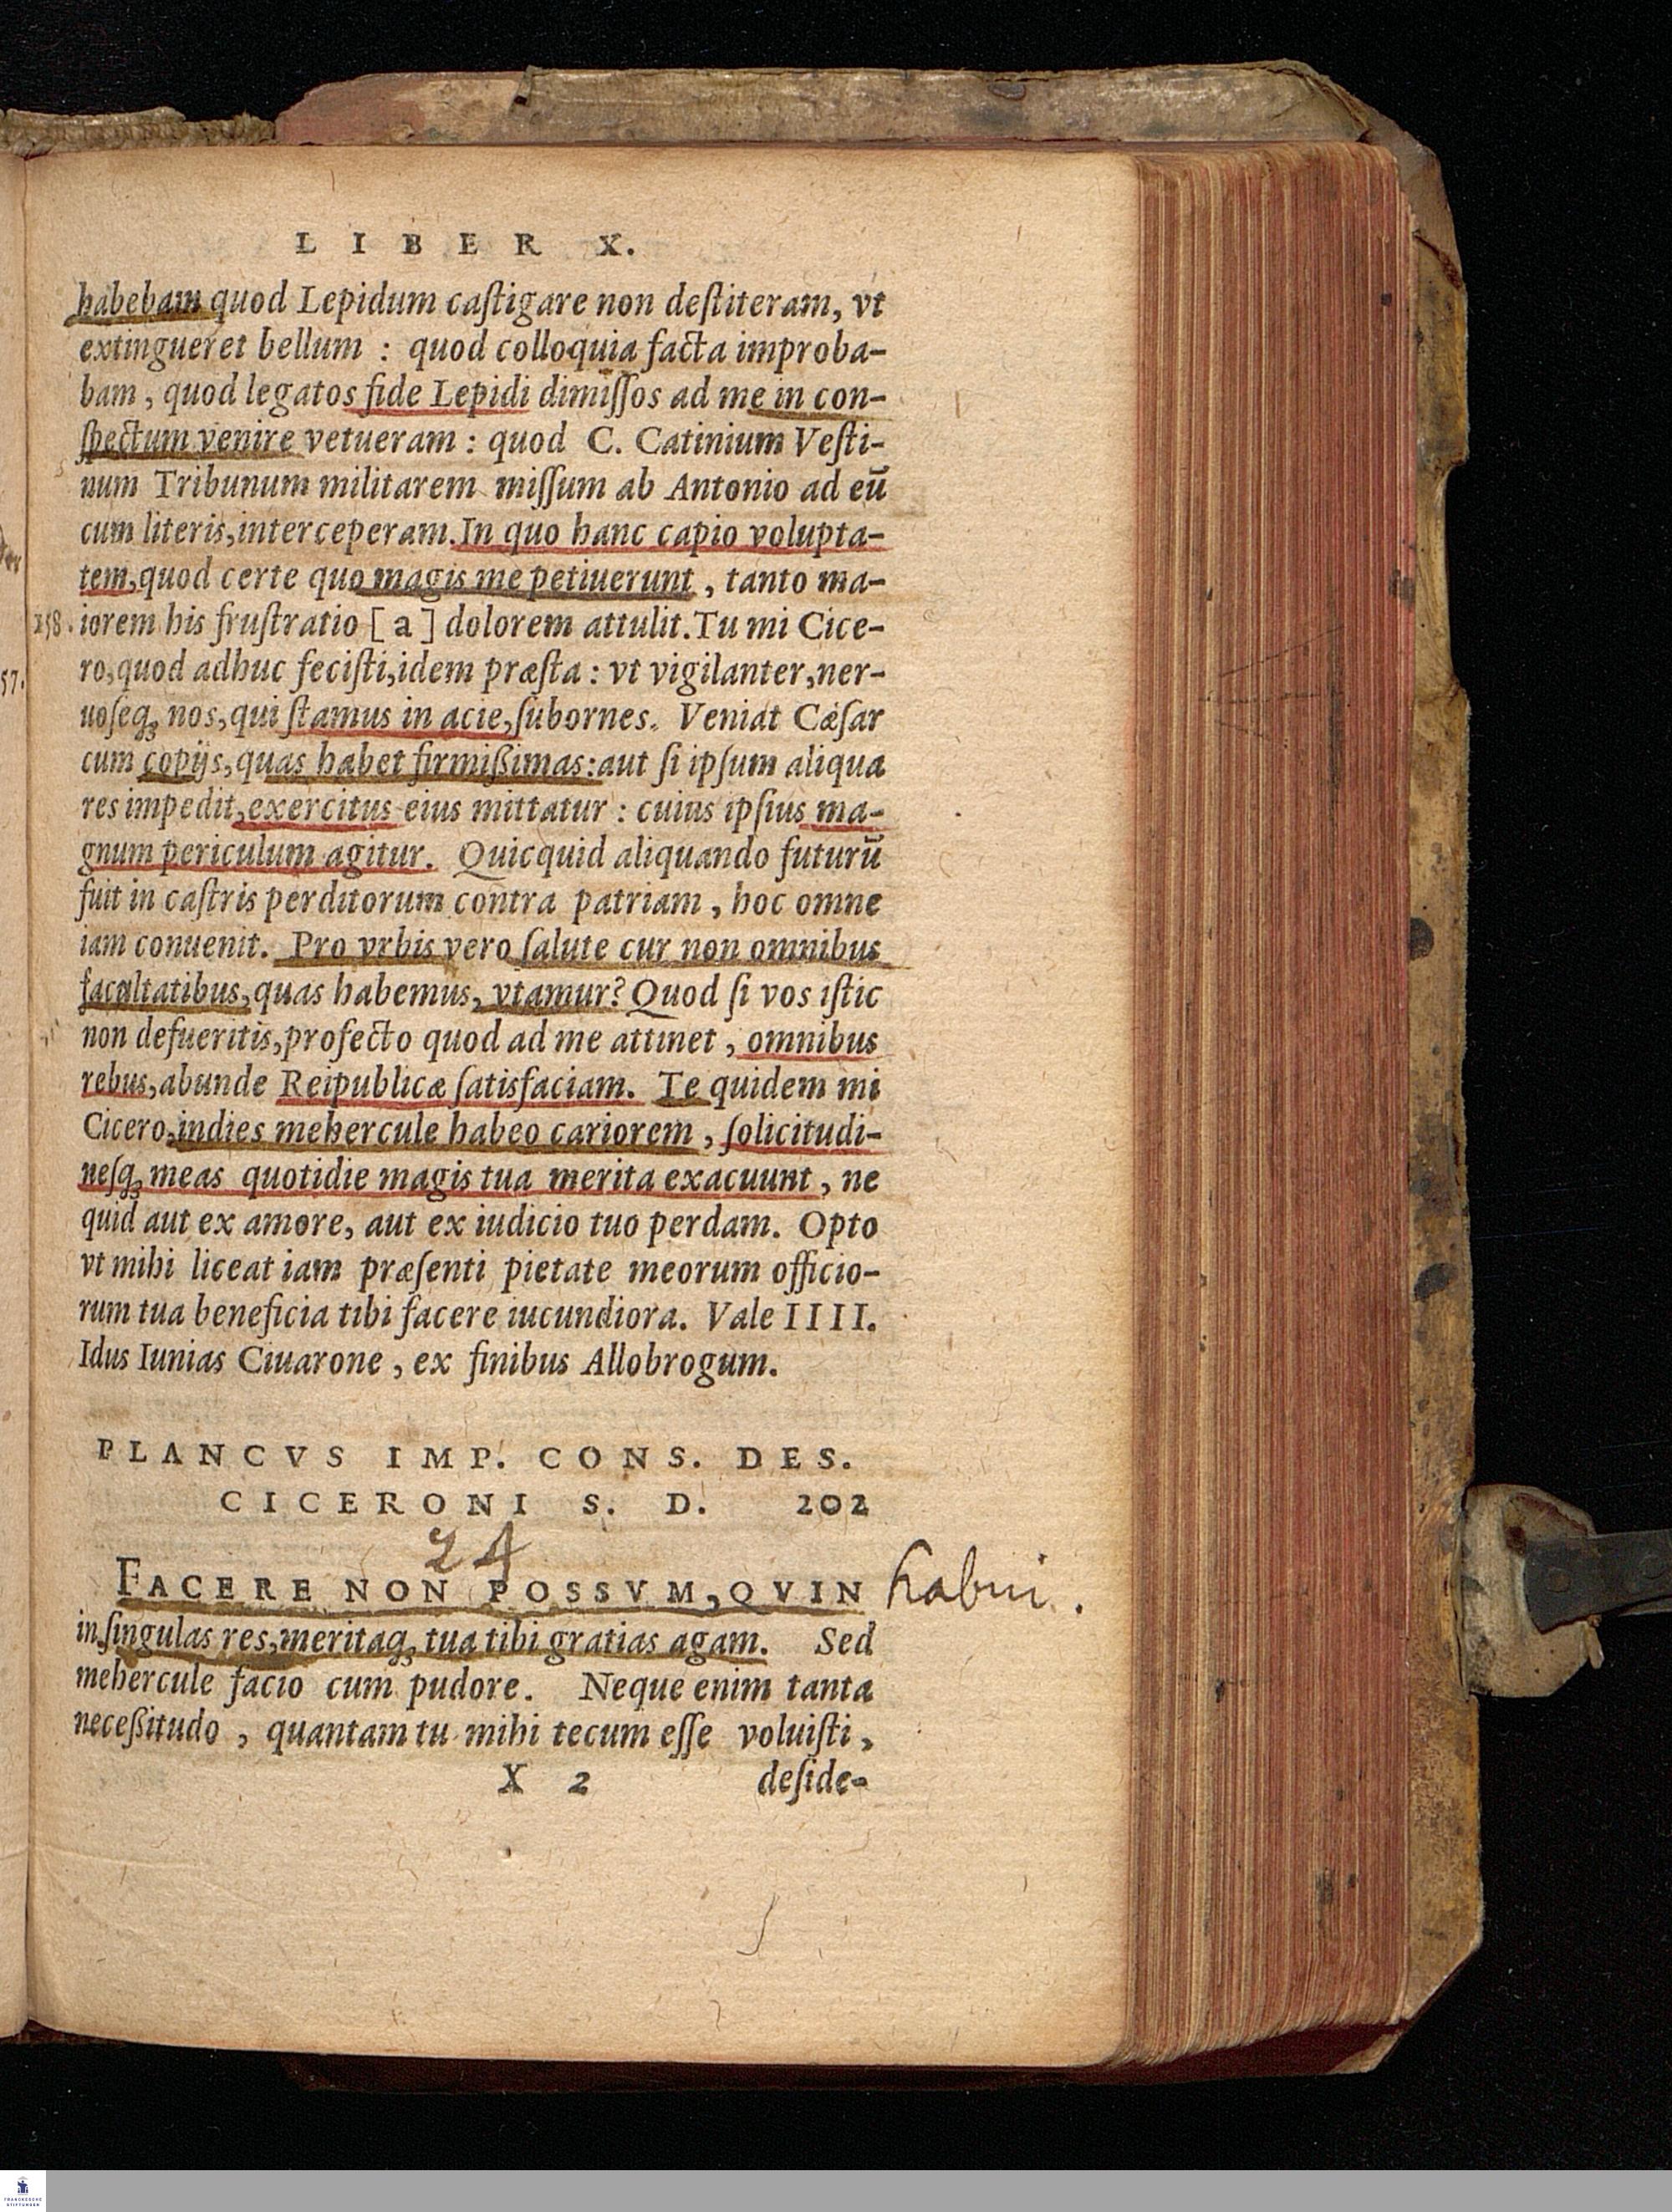 LIBER X.
habebam quod Lepidum caſtigare non deſtiteram, vt
extingueret bellum : quod colloquia facta improba-
bam, quod legatos fide Lepidi dimiſſos ad me in con-
ſpectum venire vetueram : quod C. Catinium Veſti-
num Tribunum militarem miſſum ab Antonio ad eū
cum literis, interceperam. In quo hanc capio volupta-
tem, quod certe quo magis me petiuerunt, tanto ma-
258. iorem his fruſtratio [a] dolorem attulit. Tu mi Cice-
57. ro, quod adhuc feciſti, idem præſta : vt vigilanter, ner-
uoſeq; nos, qui ſtamus in acie, ſubornes. Veniat Cæſar
cum copijs, quas habet firmißimas: aut ſi ipſum aliqua
res impedit, exercitus eius mittatur : cuius ipſius ma-
gnum periculum agitur. Quicquid aliquando futurū
fuit in caſtris perditorum contra patriam, hoc omne
iam conuenit. Pro vrbis vero ſalute cur non omnibus
facultatibus, quas habemus, vtamur? Quod ſi vos iſtic
non defueritis, profecto quod ad me attinet, omnibus
rebus, abunde Reipublicæ ſatisfaciam. Te quidem mi
Cicero, indies mehercule habeo cariorem, ſolicitudi-
neſq; meas quotidie magis tua merita exacuunt, ne
quid aut ex amore, aut ex iudicio tuo perdam. Opto
vt mihi liceat iam præſenti pietate meorum officio-
rum tua beneficia tibi facere iucundiora. Vale IIII.
Idus Iunias Ciuarone, ex finibus Allobrogum.
PLANCVS IMP. CONS. DES.
CICERONI S. D. 202
24
FACERE NON POSSVM, QVIN habui.
in ſingulas res, meritaq; tua tibi gratias agam. Sed
mehercule facio cum pudore. Neque enim tanta
neceßitudo, quantam tu mihi tecum eſſe voluiſti,
X 2 deſide-
FRANCKESCHE
STIFTUNGEN